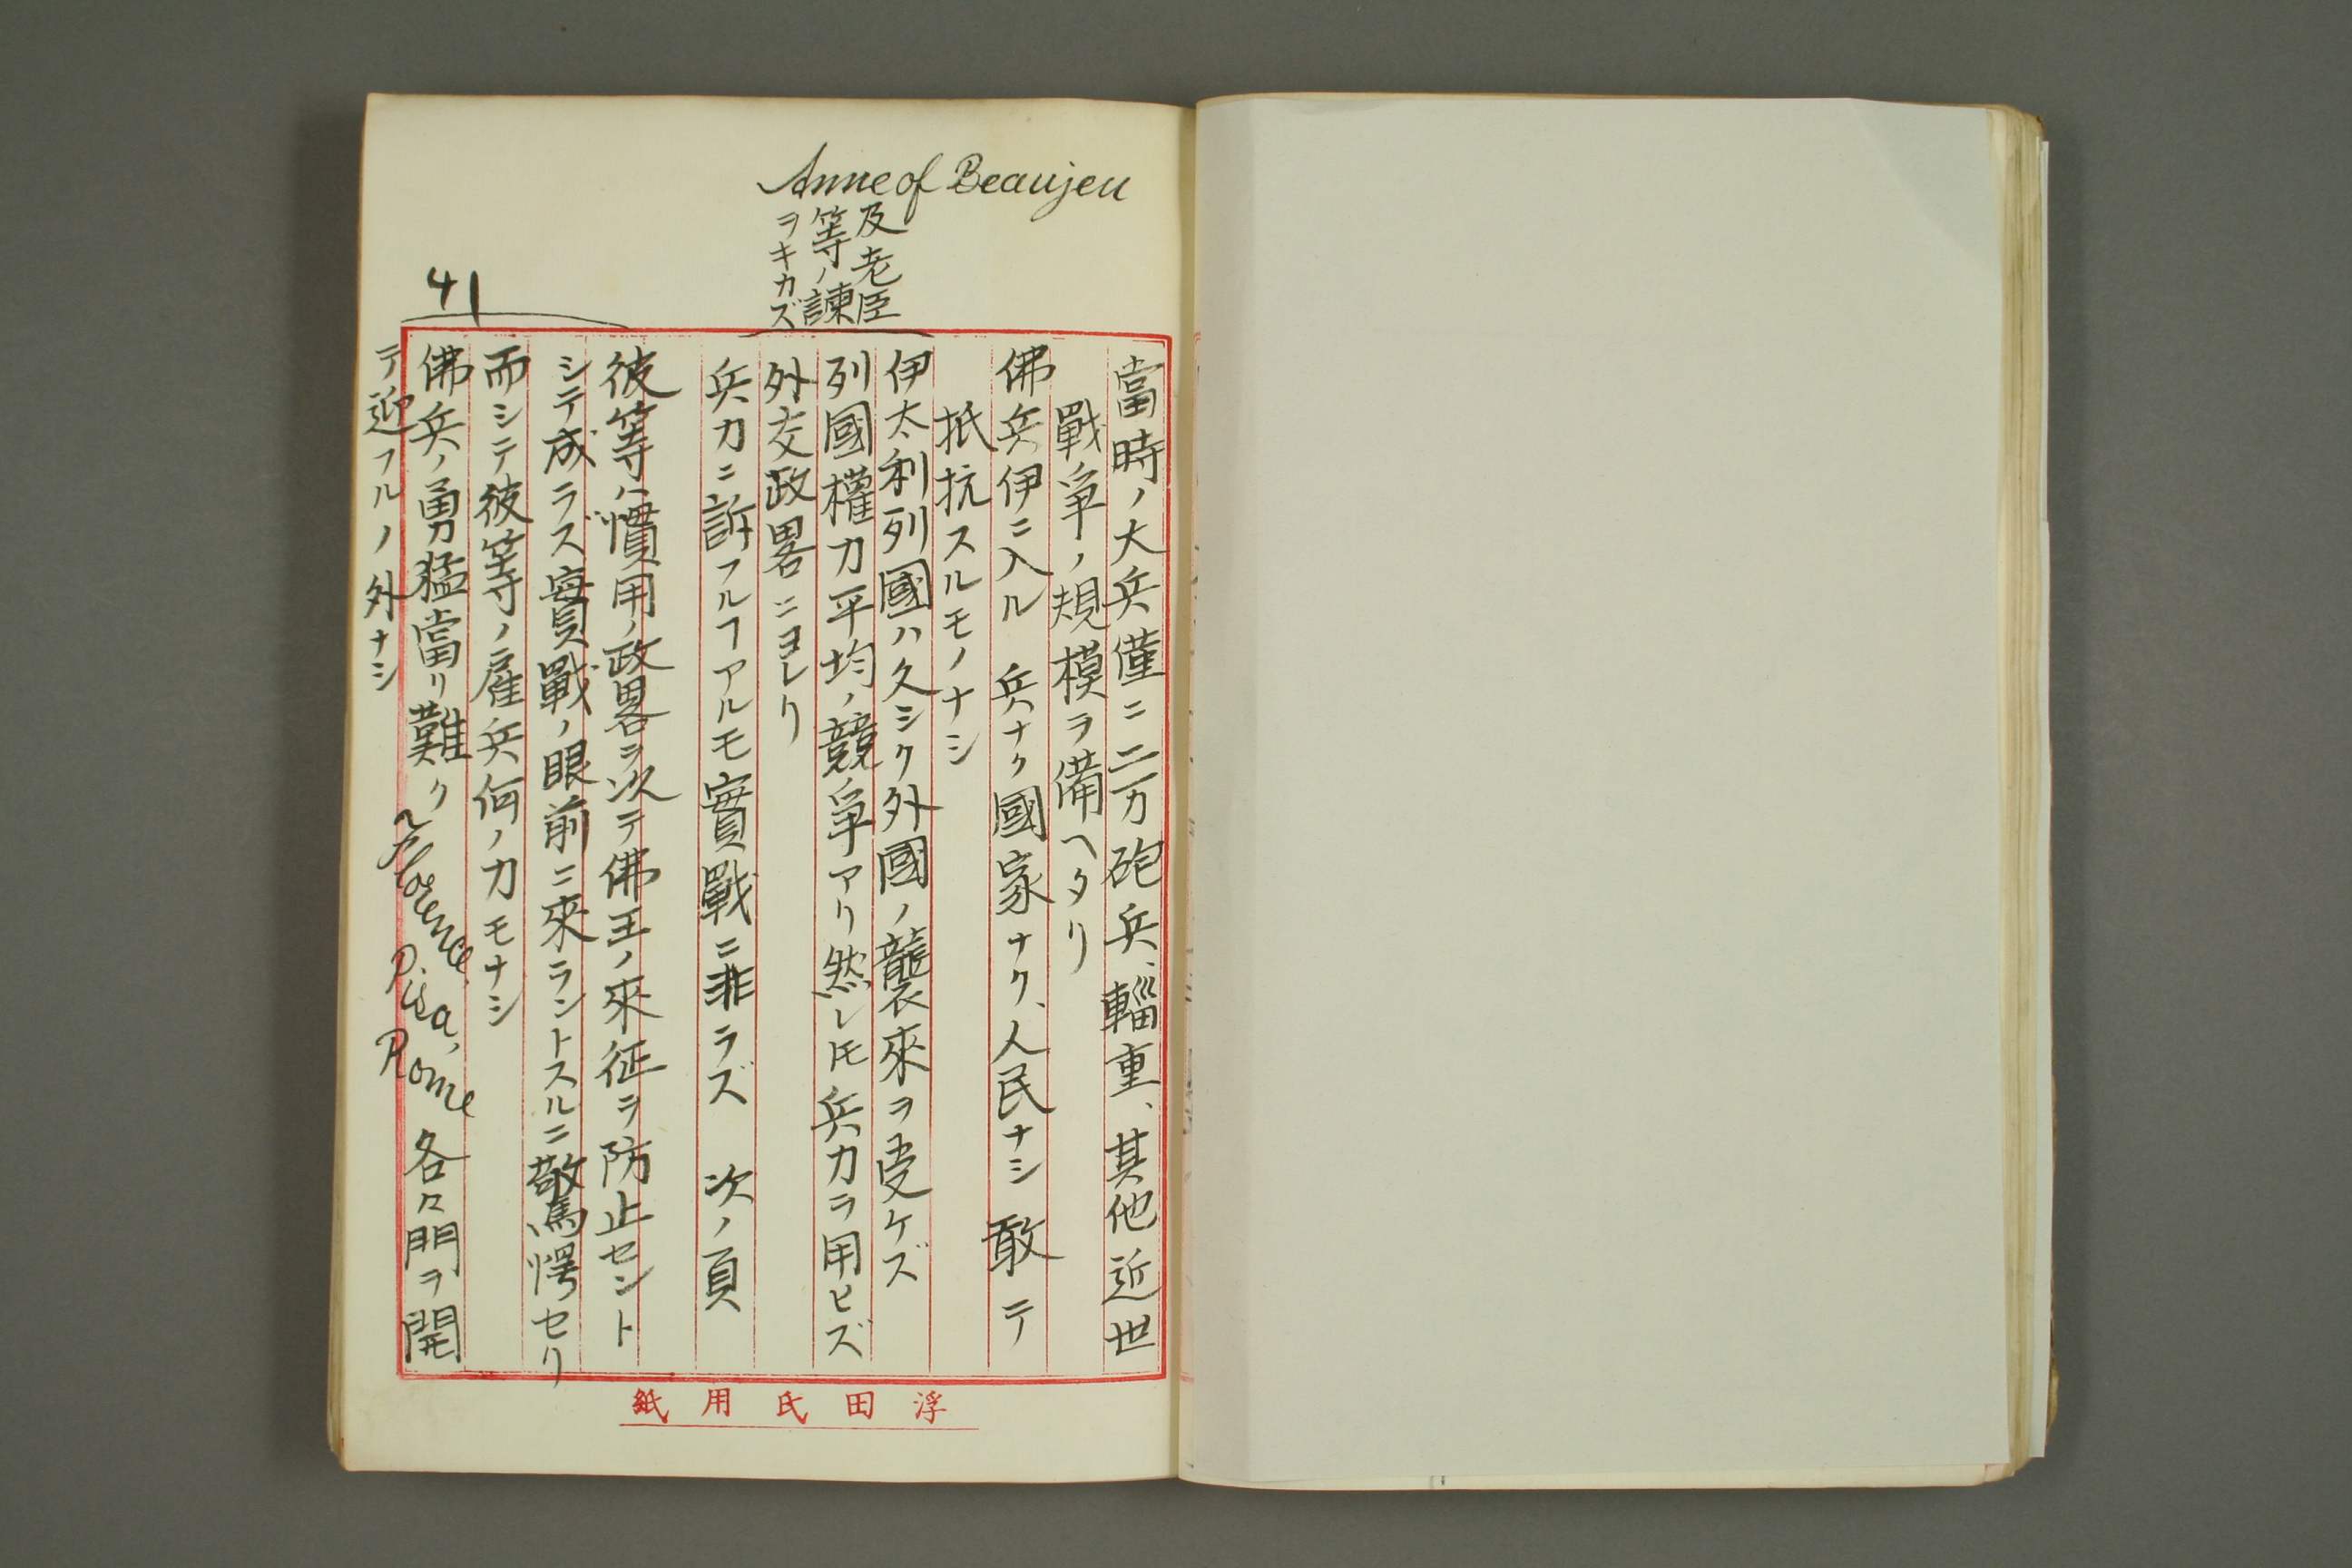 Anne of Beaujeu
及老臣
等ノ諫
ヲキカズ
41
當時ノ大兵僅ニ二万砲兵、輜重、其他近世
戰爭ノ規模ヲ備ヘタリ
佛兵伊ニ入ル 兵ナク國家ナク、人民ナシ 敢テ
抵抗スルモノナシ
伊太利列國ハ久シク外國ノ襲來ヲ受ケズ
列國權力平均ノ競爭アリ然レ𪜈兵力ヲ用ヒズ
外交政畧ニヨレリ
兵力ニ訴フルヿアルモ實戰ニ非ラズ 次ノ頁
彼等ハ慣用ノ政畧ヲ以テ佛王ノ來征ヲ防止セント
シテ成ラズ實戰ノ眼前ニ來ラントスルニ驚愕セリ
而シテ彼等ノ雇兵何ノ力モナシ
佛兵ノ勇猛當リ難ク Florence Pisa, Rome 各々門ヲ開
テ迎フルノ外ナシ
浮田氏用紙